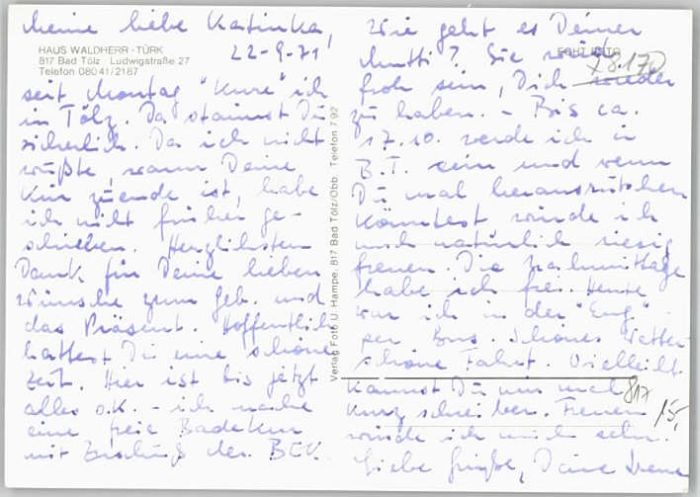 Meine liebe Katinka,
HAUS WALDHERR - TÜRK
817 Bad Tölz Ludwigstraße 27
Telefon 08041/2187
22-9-71
seit Montag "kure" ich
in Tölz. Da staunst Du
sicherlich. Da ich nicht
wußte, wann Deine
Kur zuende ist, habe
ich nicht früher ge-
schrieben. Herzlichsten
Dank für Deine lieben
Wünsche zum Geb. und
das Präsent. Hoffentlich
hattest Du eine schöne
Zeit. Hier ist bis jetzt
alles o.K. - ich mache
eine freie Badekur
mit der
Verlag Foto U. Hampe, 817 Bad Tölz/Obb. Telefon 7 92
Wie geht es Deiner
Mutti? Sie wird
ECHT FOTO
froh sein, Dich wieder
zu haben. - Bis ca.
17.10. werde ich in
B.T. sein und wenn
Du mal herausrutschen
könntest würde ich
mich natürlich riesig
freuen. Die Nachmittage
habe ich frei. Heute
war ich in der "Eng"
per Bus. Schönes Wetter
schöne Fahrt. Vielleicht
kannst Du mir mal
817
kurz schreiben. Freuen
15,-
würde ich mich sehr.
Liebe Grüße, Deine Irene